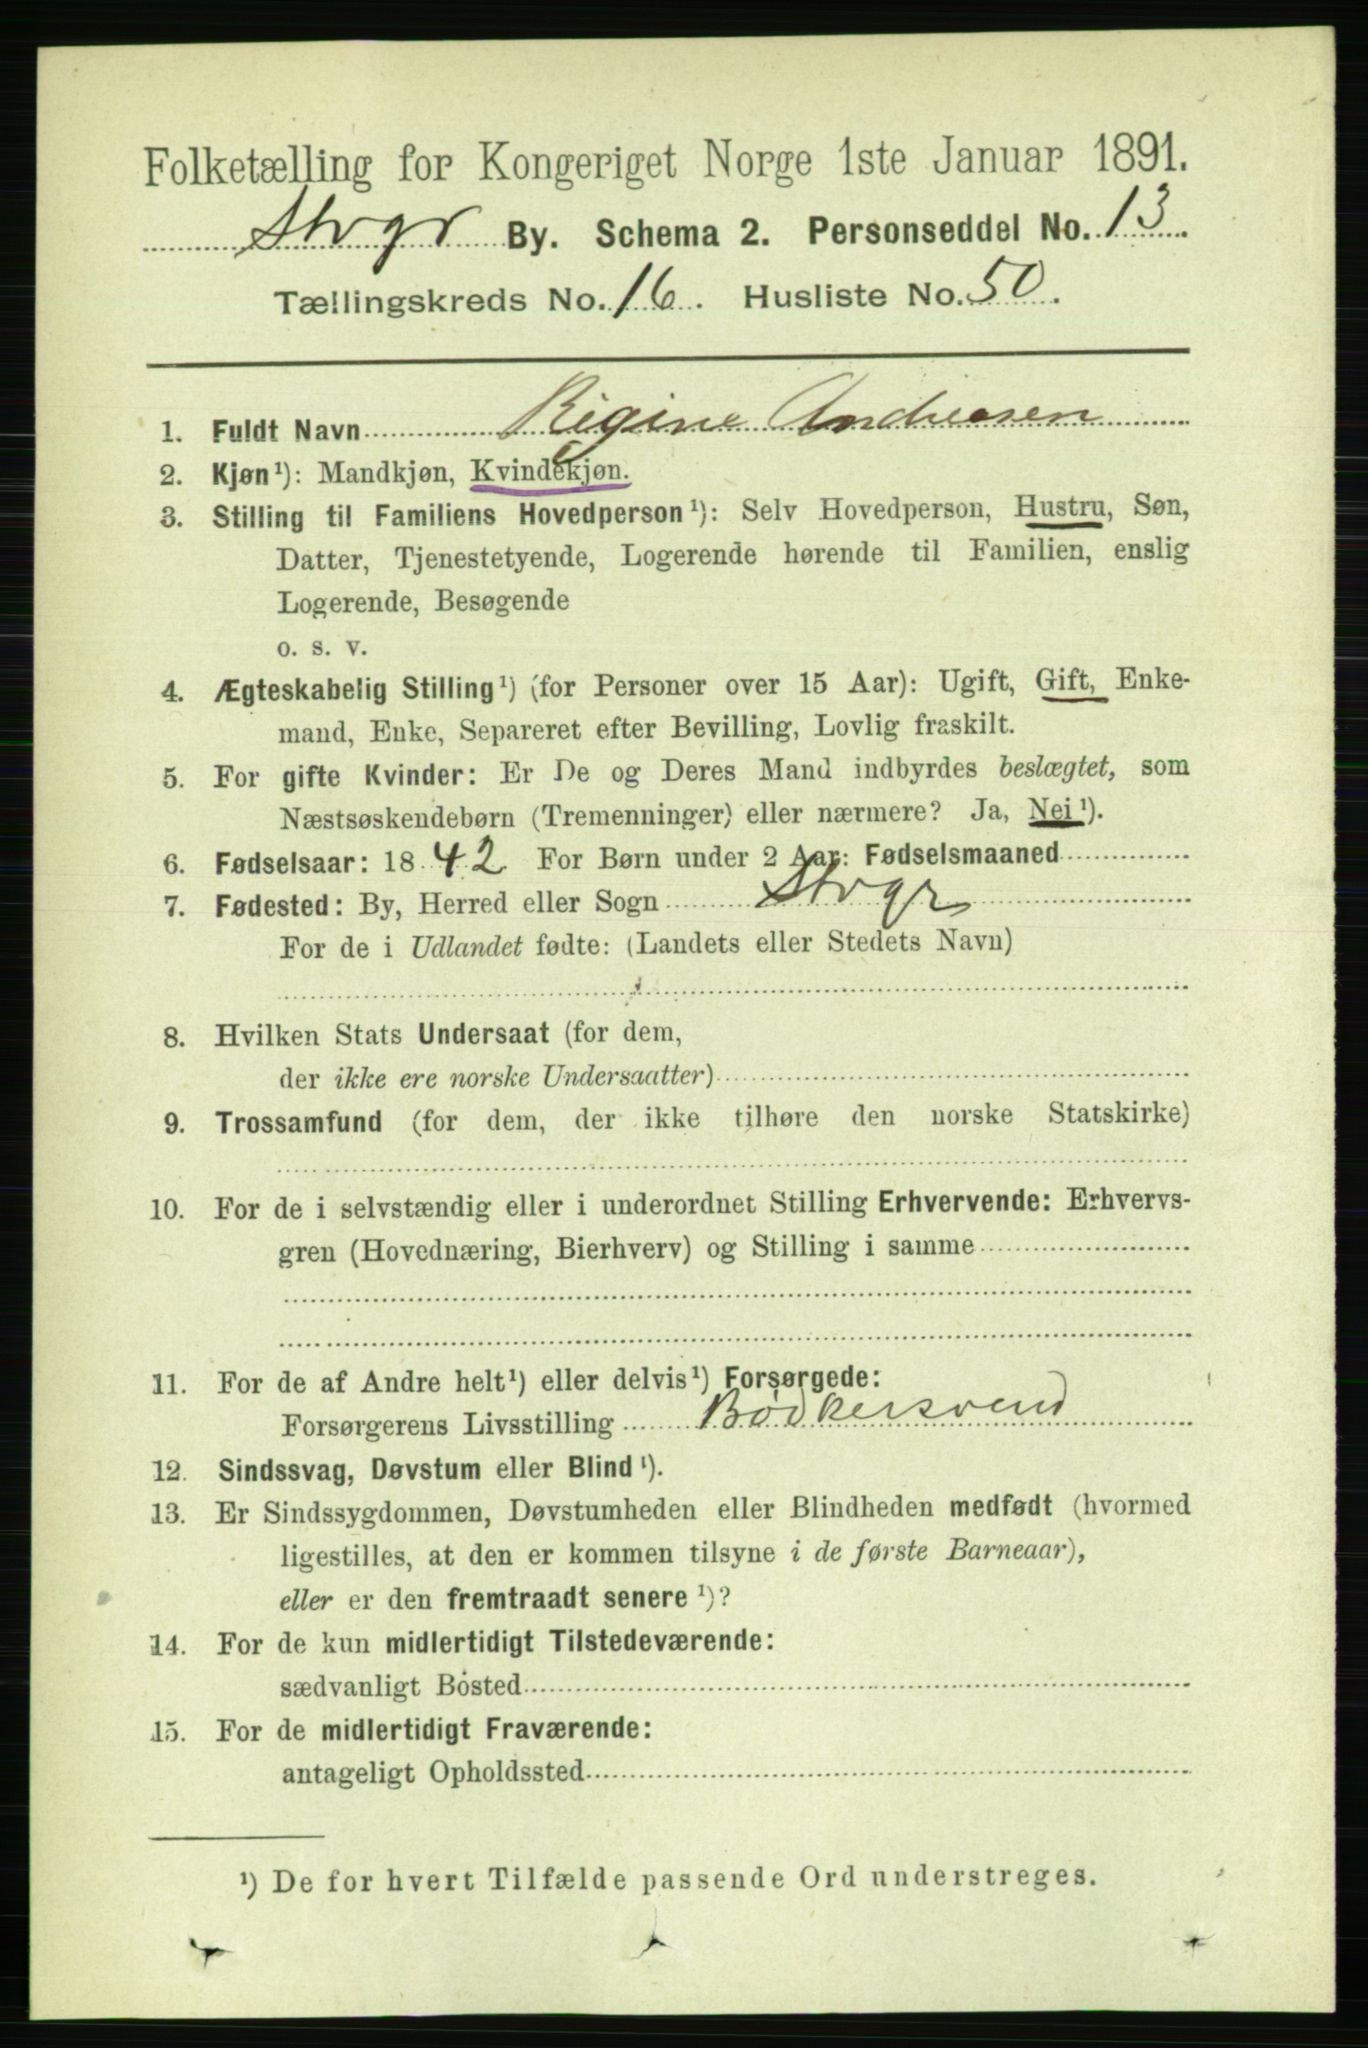 Folketælling for Kongeriget Norge 1ste Januar 1891.
Stvgr By. Schema 2. Personseddel No. 13
Tællingskreds No. 16. Husliste No. 50.
1. Fuldt Navn Regine Andreasen
2. Kjøn¹): Mandkjøn, Kvindekjøn.
3. Stilling til Familiens Hovedperson¹): Selv Hovedperson, Hustru, Søn,
Datter, Tjenestetyende, Logerende hørende til Familien, enslig
Logerende, Besøgende
o. s. v.
4. Ægteskabelig Stilling¹) (for Personer over 15 Aar): Ugift, Gift, Enke-
mand, Enke, Separeret efter Bevilling, Lovlig fraskilt.
5. For gifte Kvinder: Er De og Deres Mand indbyrdes beslægtet, som
Næstsøskendebørn (Tremenninger) eller nærmere? Ja, Nei¹).
6. Fødselsaar: 1842 For Børn under 2 Aar: Fødselsmaaned
7. Fødested: By, Herred eller Sogn Stvgr
For de i Udlandet fødte: (Landets eller Stedets Navn)
8. Hvilken Stats Undersaat (for dem,
der ikke ere norske Undersaatter)
9. Trossamfund (for dem, der ikke tilhøre den norske Statskirke)
10. For de i selvstændig eller i underordnet Stilling Erhvervende: Erhvervs-
gren (Hovednæring, Bierhverv) og Stilling i samme
11. For de af Andre helt¹) eller delvis¹) Forsørgede:
Forsørgerens Livsstilling Bødkersvend
12. Sindssvag, Døvstum eller Blind¹).
13. Er Sindssygdommen, Døvstumheden eller Blindheden medfødt (hvormed
ligestilles, at den er kommen tilsyne i de første Barneaar),
eller er den fremtraadt senere¹)?
14. For de kun midlertidigt Tilstedeværende:
sædvanligt Bosted
15. For de midlertidigt Fraværende:
antageligt Opholdssted
¹) De for hvert Tilfælde passende Ord understreges.